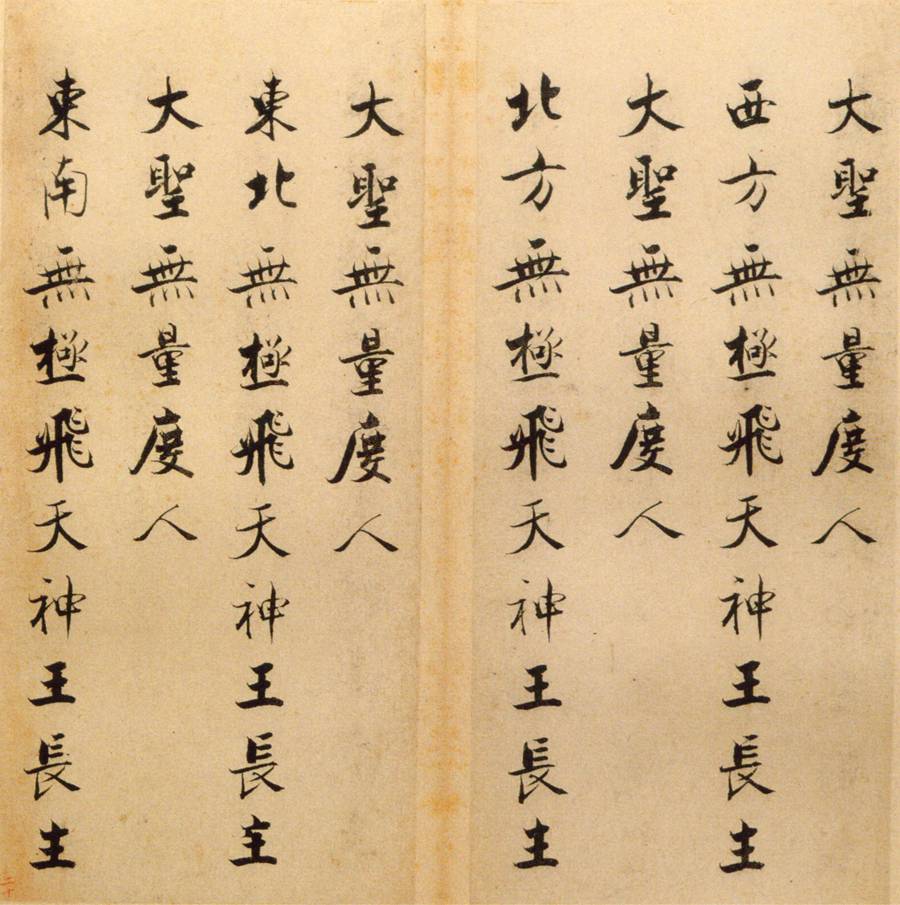 大聖無量度人
西方無極飛天神王長生
大聖無量度人
北方無極飛天神王長生
大聖無量度人
東北無極飛天神王長生
大聖無量度人
東南無極飛天神王長生
二十